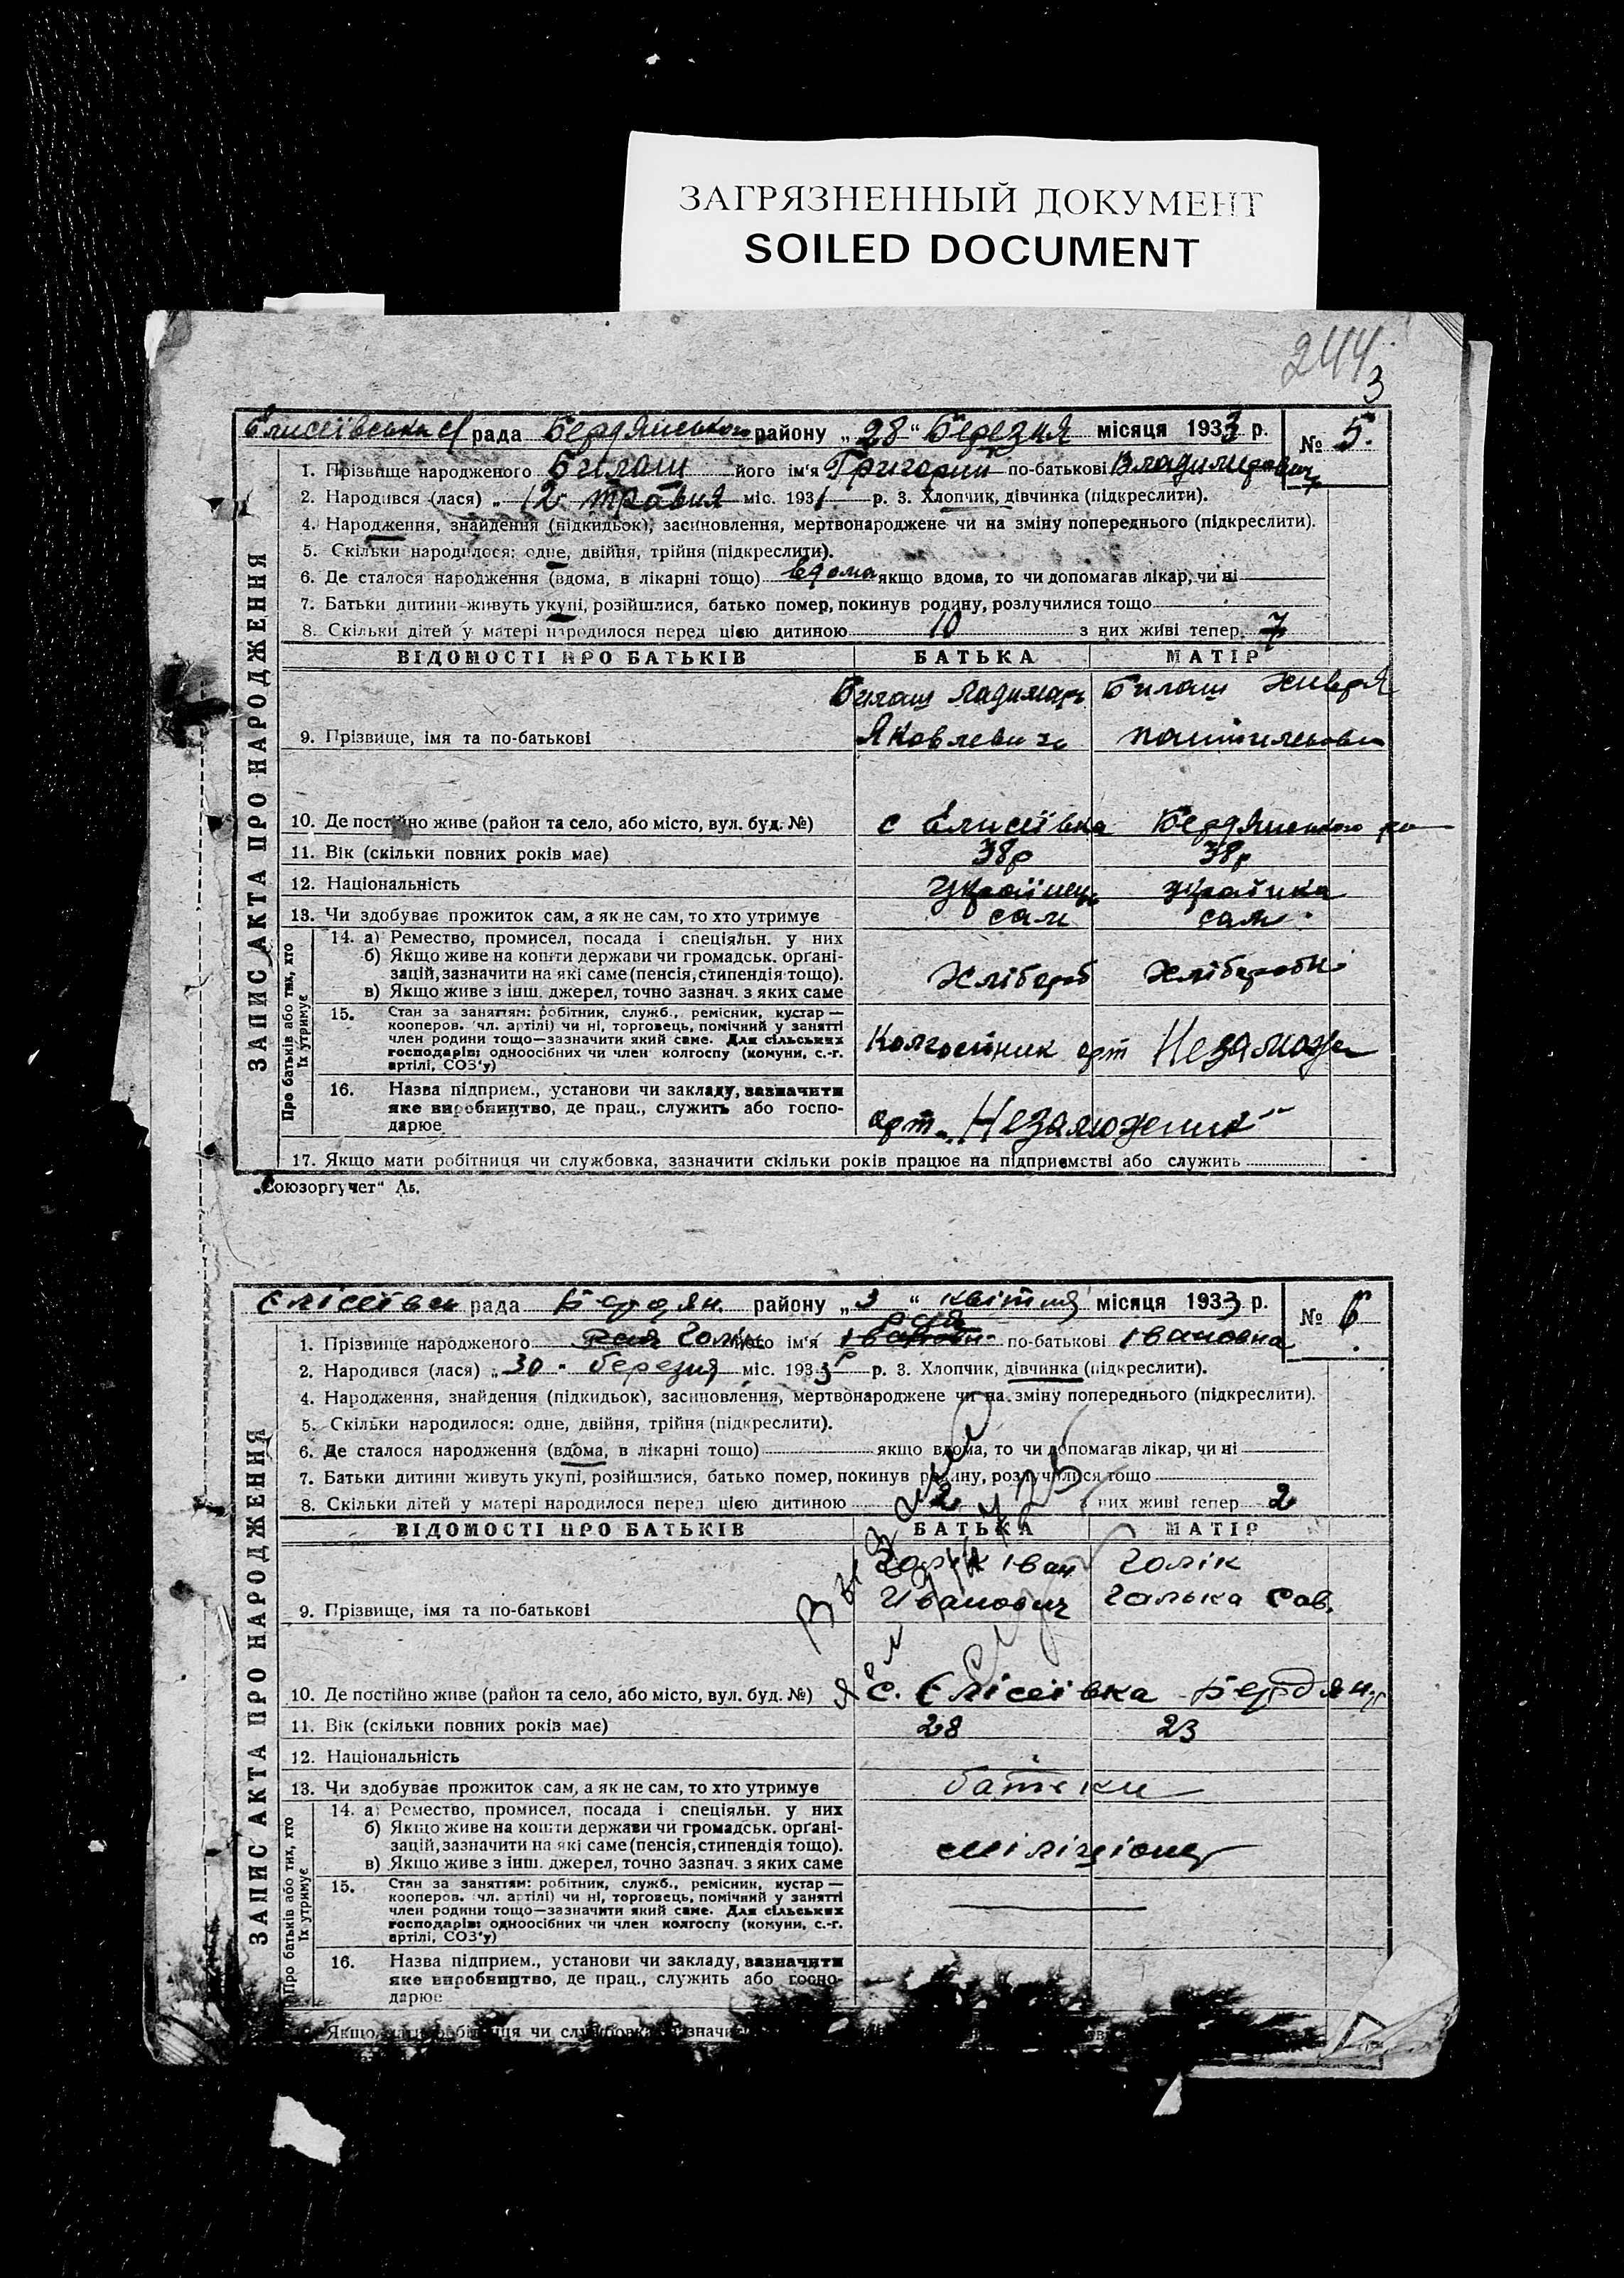 ЗАГРЯЗНЕННЫЙ ДОКУМЕНТ
SOILED DOCUMENT
244
3
Єлисеївська с/рада Бердянського району „28“ Березня місяця 1933 р. № 5.
ЗАПИС АКТА ПРО НАРОДЖЕННЯ
1. Прізвище народженого Билаш його ім'я Григорий по-батькові Владимирович
2. Народився (лася) „12 травня міс. 1931 р. 3. Хлопчик, дівчинка (підкреслити).
4. Народження, знайдення (підкидьок), засиновлення, мертвонароджене чи на зміну попереднього (підкреслити).
5. Скільки народилося: одне, двійня, трійня (підкреслити).
6. Де сталося народження (вдома, в лікарні тощо) вдома якщо вдома, то чи допомагав лікар, чи ні
7. Батьки дитини живуть укупі, розійшлися, батько помер, покинув родину, розлучилися тощо
8. Скільки дітей у матері народилося перед цією дитиною 10 з них живі тепер 7
ВІДОМОСТІ ПРО БАТЬКІВ БАТЬКА МАТІР
Билаш Ладимар Билаш Хивря
9. Прізвище, імя та по-батькові Яковлевич
10. Де постійно живе (район та село, або місто, вул. буд. №) с Єлисеївка Бердянського ра
11. Вік (скільки повних років має) 38р 38р
12. Національність Українець українка
13. Чи здобуває прожиток сам, а як не сам, то хто утримує сам сам
Про батьків або тих, хто їх утримує
14. а) Ремество, промисел, посада і спеціяльн. у них
б) Якщо живе на кошти держави чи громадськ. органі-
зацій, зазначити на які саме (пенсія, стипендія тощо). Хлібороб Хлібороб
в) Якщо живе з інш. джерел, точно зазнач. з яких саме
15. Стан за заняттям: робітник, служб., ремісник, кустар —
кооперов. (чл. артілі) чи ні, торговець, помічний у занятті
член родини тощо—зазначити який саме. Для сільських Колгоспник арт Незаможн
господарів: одноосібних чи член колгоспу (комуни, с.-г.
артілі, СОЗ'у)
16. Назва підприєм., установи чи закладу, зазначити
яке виробництво, де прац., служить або госпо-
дарює арт „Незаможник“
17. Якщо мати робітниця чи службовка, зазначити скільки років працює на підприємстві або служить
„Союзоргучет“ Лб.
Єлісеївськ рада Бердян. району „3“ квітня місяця 1933 р. № 6
ЗАПИС АКТА ПРО НАРОДЖЕННЯ
1. Прізвище народженого Голік його ім'я Рая по-батькові Івановна
2. Народився (лася) „30 березня міс. 1933 р. 3. Хлопчик, дівчинка (підкреслити).
4. Народження, знайдення (підкидьок), засиновлення, мертвонароджене чи на зміну попереднього (підкреслити).
5. Скільки народилося: одне, двійня, трійня (підкреслити).
6. Де сталося народження (вдома, в лікарні тощо) якщо вдома, то чи допомагав лікар, чи ні
7. Батьки дитини живуть укупі, розійшлися, батько помер, покинув родину, розлучилися тощо
8. Скільки дітей у матері народилося перед цією дитиною 2 з них живі тепер 2
ВІДОМОСТІ ПРО БАТЬКІВ БАТЬКА МАТІР
Голік Іван Голік
9. Прізвище, імя та по-батькові Иванович Галька Сав.
10. Де постійно живе (район та село, або місто, вул. буд. №) с. Єлісеївка Бердян.
11. Вік (скільки повних років має) 28 23
12. Національність
13. Чи здобуває прожиток сам, а як не сам, то хто утримує батьки
Про батьків або тих, хто їх утримує
14. а) Ремество, промисел, посада і спеціяльн. у них
б) Якщо живе на кошти держави чи громадськ. органі-
зацій, зазначити на які саме (пенсія, стипендія тощо). міліціонер
в) Якщо живе з інш. джерел, точно зазнач. з яких саме
15. Стан за заняттям: робітник, служб., ремісник, кустар —
кооперов. (чл. артілі) чи ні, торговець, помічний у занятті
член родини тощо—зазначити який саме. Для сільських
господарів: одноосібних чи член колгоспу (комуни, с.-г.
артілі, СОЗ'у)
16. Назва підприєм., установи чи закладу, зазначити
яке виробництво, де прац., служить або госпо-
дарює
Якщо мати робітниця чи службовка